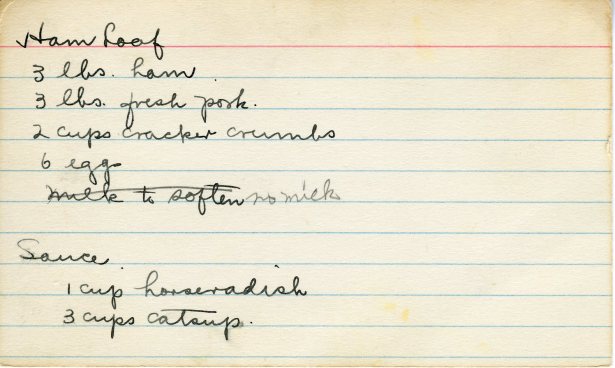 Ham Loaf
3 lbs. ham
3 lbs. fresh pork.
2 cups cracker crumbs
6 eggs
milk to soften no milk
Sauce
1 cup horseradish
3 cups catsup.